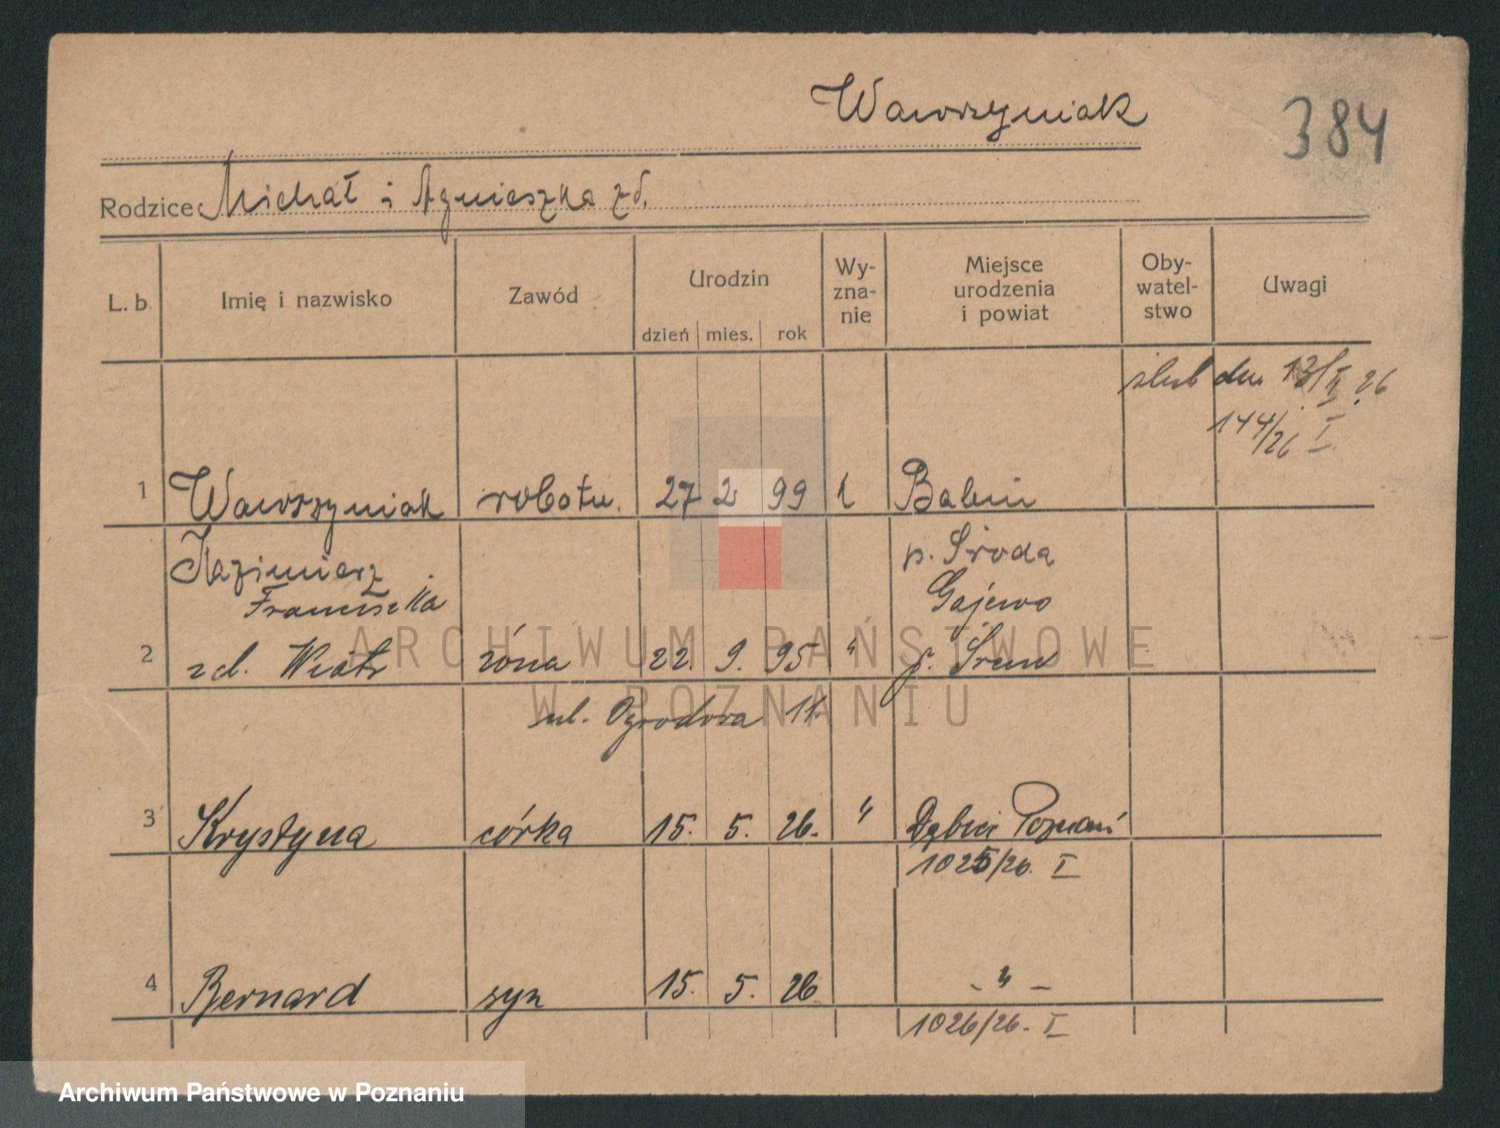 Wawrzyniak
384
Rodzice Michał i Agnieszka zd.
L. b. Imię i nazwisko Zawód Urodzin dzień mies. rok Wy-zna-nie Miejsce urodzenia i powiat Oby-watel-stwo Uwagi
ślub dn. 13/II 26
144/26 I
1 Wawrzyniak robotn. 27 2 99 k Babin
Kazimierz p. Środa
Franciszka Gajewo
2 zd. Wiatr żona 22. 9. 95 " p. Śrem
ul. Ogrodowa 11.
3 Krystyna córka 15. 5. 26. " Dębiec Poznań
1025/26. I
4 Bernard syn 15. 5. 26 - " -
1026/26. I
ARCHIWUM PAŃSTWOWE
W POZNANIU
Archiwum Państwowe w Poznaniu